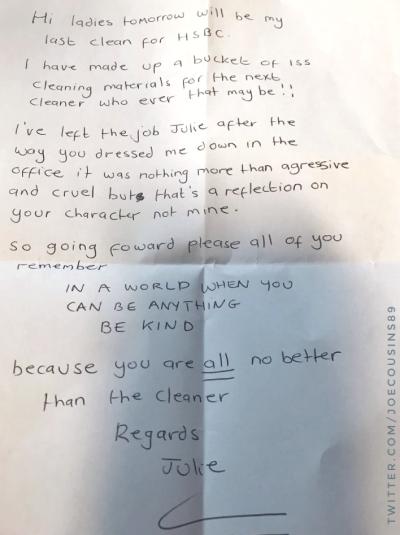 Hi ladies tomorrow will be my
last clean for HSBC.
I have made up a bucket of iss
cleaning materials for the next
cleaner who ever that may be!!
I've left the job Julie after the
way you dressed me down in the
office it was nothing more than agressive
and cruel but that's a reflection on
your character not mine.
So going foward please all of you
remember
IN A WORLD WHEN YOU
CAN BE ANYTHING
BE KIND
because you are all no better
than the cleaner
Regards
Julie
TWITTER.COM/JOECOUSINS89